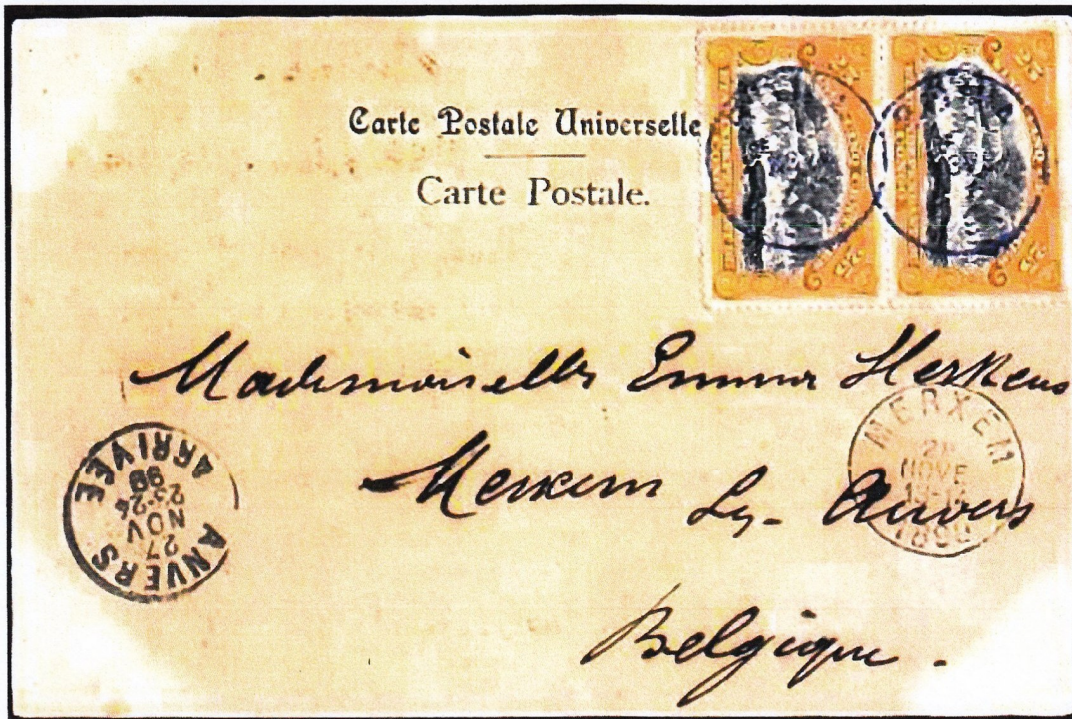 Carte Postale Universelle
Carte Postale.
25 25
25 25
Mademoiselle Emma Herkens
Merxem Lez-Anvers
Belgique.
MERXEM
NOVE
ANVERS
27
NOV
23-24
ARRIVÉE